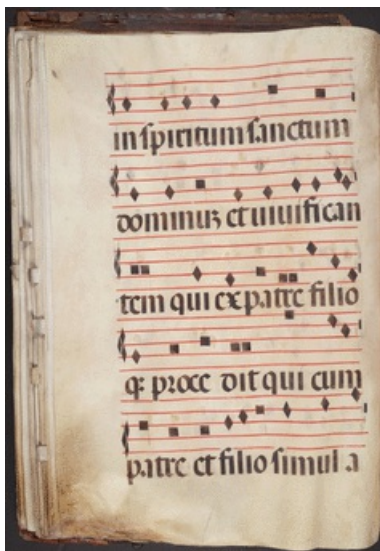 in spiritum sanctum
dominuʒ et uiuifican
tem qui ex patre filio
qꝫ proce dit qui cum
patre et filio simul a